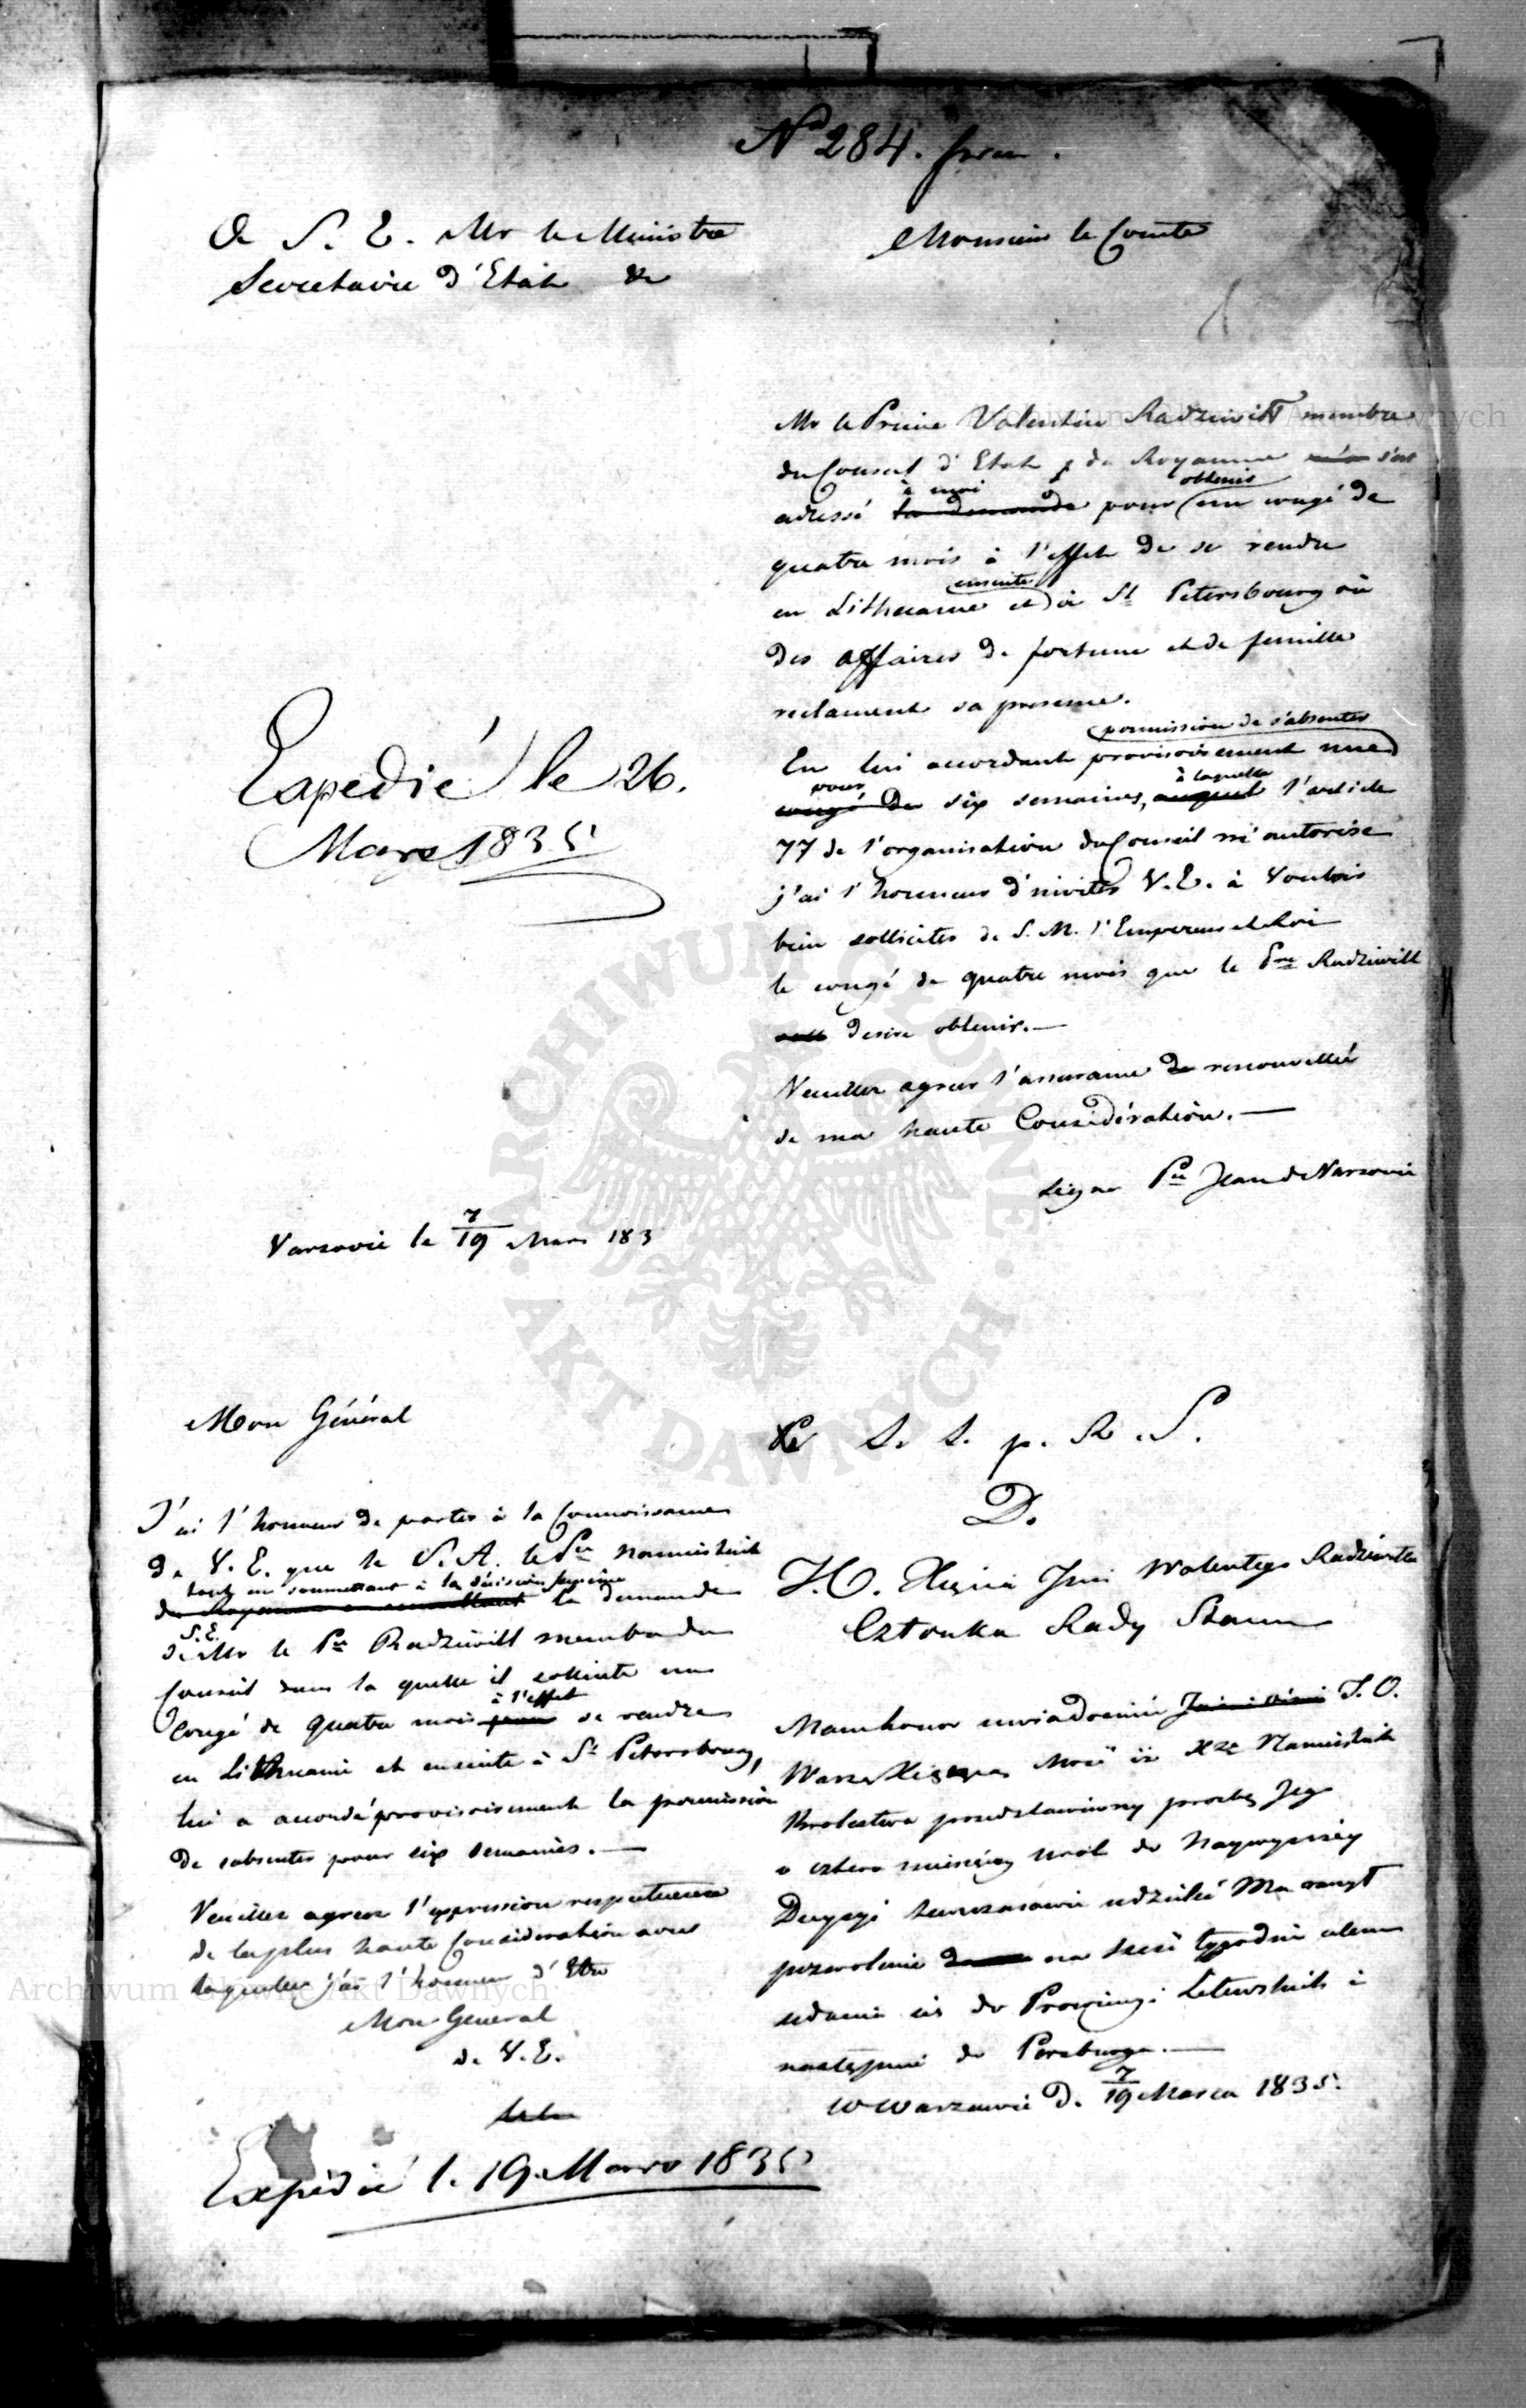 No 284.
A S. E. Mr le Ministre
Secretaire d'Etat &
Monsieur le Comte
Mr le Prince Valentin Radziwill membre
du Conseil d'Etat du Royaume m'a s'est
à moi obtenir
adressé la demande pour un congé de
quatre mois à l'effet de se rendre
ensuite
en Lithuanie et à St Petersbourg où
des affaires de fortune et de famille
reclament sa presence.
permission de s'absenter
En lui accordant provisoirement une
pour à laquelle
congé de six semaines, auquel l'article
77 de l'organisation du Conseil m'autorise
j'ai l'honneur d'inviter V. E. à vouloir
bien solliciter de S. M. l'Empereur et Roi
le congé de quatre mois que le Pce Radziwill
desire obtenir.—
Veuillez agréer l'assurance de renouvellée
de ma haute Considération.—
signé Pce Jean de Varsovie
Expedié le 26.
Mars 1835
Varsovie le 7/19 Mars 183
Mon Général
J'ai l'honneur de porter à la Connoissance
de V. E. que le S. A. le Pce Namiestnik
tout en soumettant à la décision suprême
du Royaume en soumettant la demande
S. E.
de Mr le Pce Radziwill membre du
Conseil dans la quelle il sollicite un
à l'effet
Congé de quatre mois pour se rendre
en Lithuanie et ensuite à St Petersbourg,
lui a accordé provisoirement la permission
de s'absenter pour six semaines.—
Veuillez agréer l'expression respectueuse
de la plus haute Consideration avec
laquelle j'ai l'honneur d'Etre
Mon General
de V. E.
Expédié l. 19. Mars 1835
S. S. p. R. S.
D.
J. O. Xięcia Jmci Walentego Radziwiłła
Członka Rady Stanu
Mam honor uwiadomić J. O.
Waszą Xiążęcą Mość iż Xże Namiestnik
Królestwa przedstawiwszy prozbę Jego
o cztero miesięczny urlop do Naywyższey
Decyzyi tymczasowie udzielić Mu raczył
pozwolenie na sześć tygodni celem
udania się do Prowincyi Litewskich i
następnie do Petersburga.—
w Warszawie D. 7/19 Marca 1835.
Archiwum Główne Akt Dawnych
ARCHIWUM GŁÓWNE
AKT DAWNYCH
Archiwum Główne Akt Dawnych